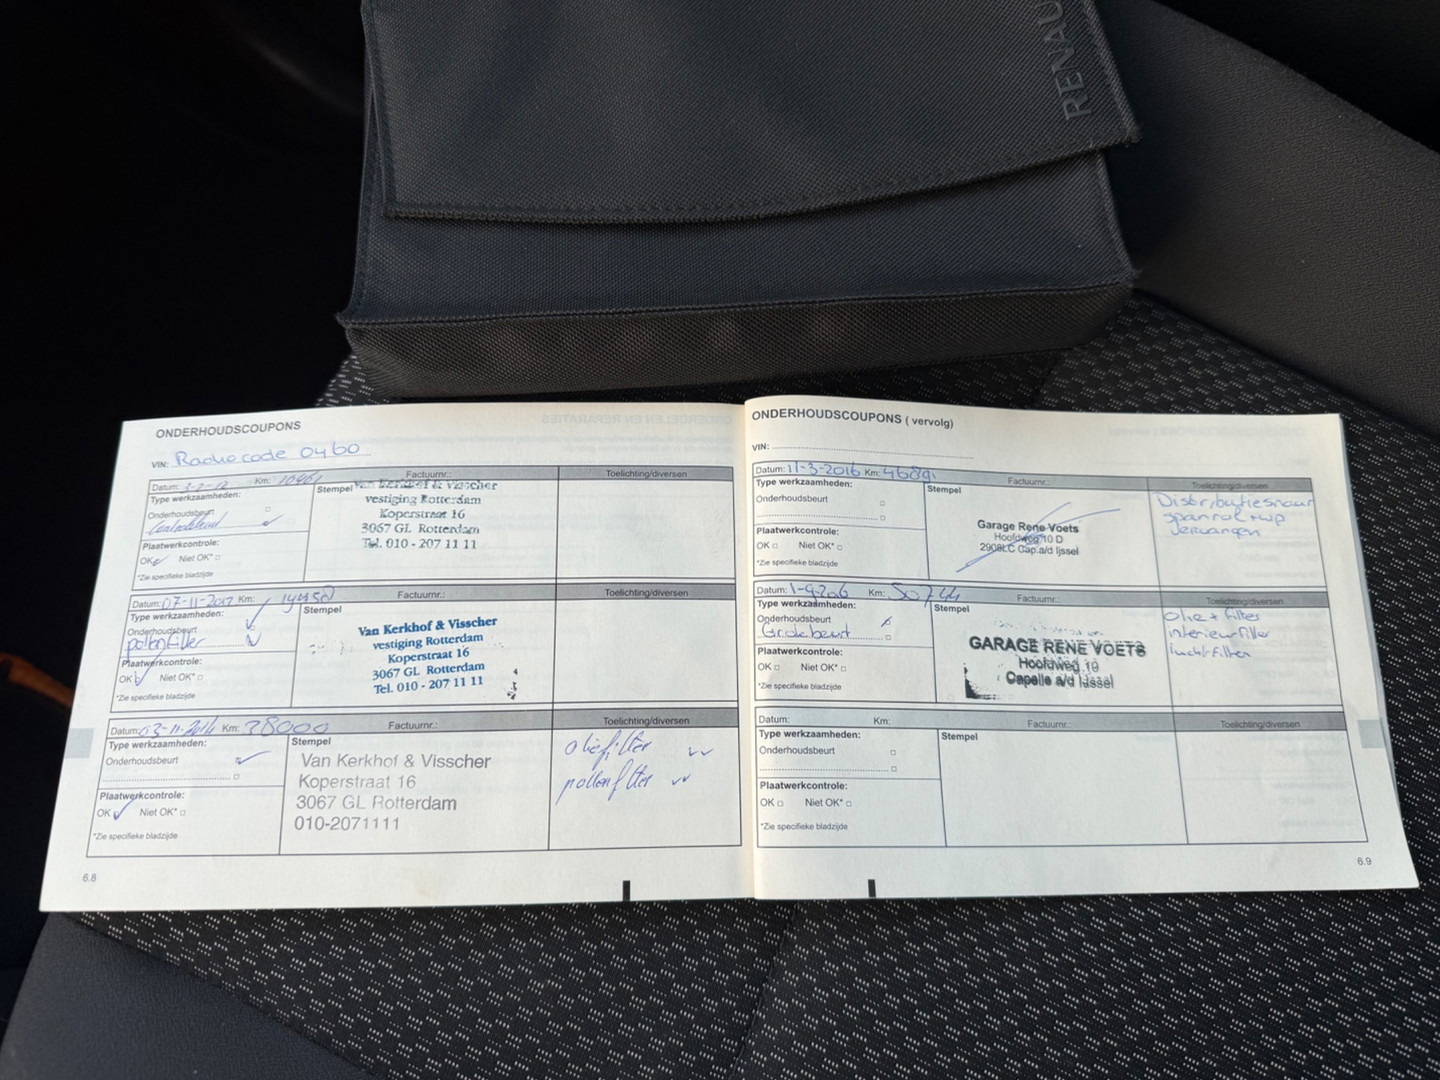 RENAU
ONDERHOUDSCOUPONS
VIN: Radiocode 0460
Datum: Km: Factuurnr.: Toelichting/diversen
Type werkzaamheden:
Stempel
Van Kerkhof & Visscher
vestiging Rotterdam
Koperstraat 16
3067 GL Rotterdam
Tel. 010 - 207 11 11
Onderhoudsbeurt
Plaatwerkcontrole:
OK Niet OK*
*Zie specifieke bladzijde
Datum: 07-11-2012 Km: Factuurnr.: Toelichting/diversen
Type werkzaamheden:
Stempel
Van Kerkhof & Visscher
vestiging Rotterdam
Koperstraat 16
3067 GL Rotterdam
Tel. 010 - 207 11 11
Onderhoudsbeurt
pollenfilter
Plaatwerkcontrole:
OK Niet OK*
*Zie specifieke bladzijde
Datum: 03-11-2014 Km: 38000 Factuurnr.: Toelichting/diversen
Type werkzaamheden:
Stempel
Van Kerkhof & Visscher
Koperstraat 16
3067 GL Rotterdam
010-2071111
oliefilter
pollenfilter
Onderhoudsbeurt
Plaatwerkcontrole:
OK Niet OK*
*Zie specifieke bladzijde
6.8
ONDERHOUDSCOUPONS ( vervolg)
VIN:
Datum: 11-3-2016 Km: Factuurnr.: Toelichting/diversen
Type werkzaamheden:
Stempel
Garage Rene Voets
Hoofdweg 10 D
2908LC Cap.a/d Ijssel
Distributiesnaar
spanrol + wp
vervangen
Onderhoudsbeurt
Plaatwerkcontrole:
OK Niet OK*
*Zie specifieke bladzijde
Datum: Km: 50744 Factuurnr.: Toelichting/diversen
Type werkzaamheden:
Stempel
GARAGE RENE VOETS
Hoofdweg 10
Capelle a/d Ijssel
Olie + filter
interieurfilter
luchtfilter
Onderhoudsbeurt
Grote beurt
Plaatwerkcontrole:
OK Niet OK*
*Zie specifieke bladzijde
Datum: Km: Factuurnr.: Toelichting/diversen
Type werkzaamheden:
Stempel
Onderhoudsbeurt
Plaatwerkcontrole:
OK Niet OK*
*Zie specifieke bladzijde
6.9